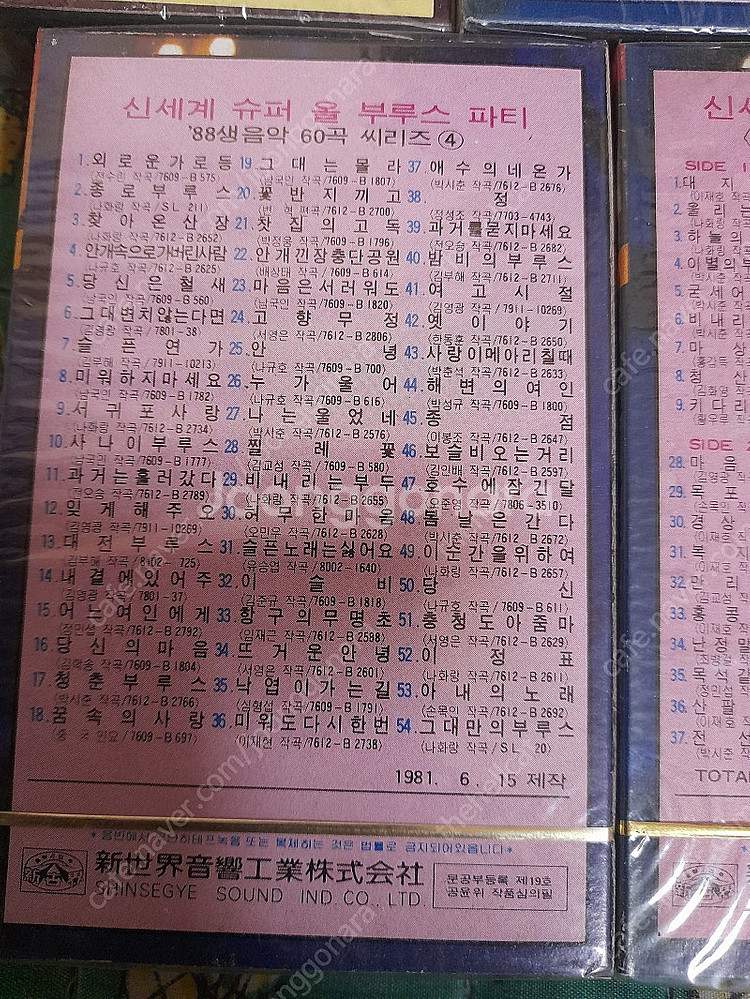 신세계 슈퍼 올 부루스 파티
'88생음악 60곡 씨리즈 ④
1. 외로운가로등
(전수린 작곡/7609-B 575)
2. 종로부루스
(나화랑/SL 211)
3. 찾아온산장
(나화랑 작곡/7612-B 2652)
4. 안개속으로가버린사람
(나규호 작곡/7612-B 2625)
5. 당신은철새
(남국인 작곡/7609-B 560)
6. 그대변치않는다면
(김영광 작곡/7801-38)
7. 슬픈연가
(김부해 작곡/7911-10213)
8. 미워하지마세요
(남국인 작곡/7609-B 1782)
9. 서귀포사랑
(나화랑 작곡/7612-B 2734)
10. 사나이부루스
(남국인 작곡/7609-B 1777)
11. 과거는흘러갔다
(전오승 작곡/7612-B 2789)
12. 잊게해주오
(김영광 작곡/7911-10269)
13. 대전부루스
(김부해 작곡/8102-725)
14. 내곁에있어주
(김영광 작곡/7801-37)
15. 어느여인에게
(정민섭 작곡/7612-B 2792)
16. 당신의마음
(김학송 작곡/7609-B 1804)
17. 청춘부루스
(박시춘 작곡/7612-B 2766)
18. 꿈속의사랑
(중국민요/7609-B 697)
19. 그대는몰라
(남국인 작곡/7609-B 1807)
20. 꽃반지끼고
(변혁 편곡/7612-B 2700)
21. 찻집의고독
(박정웅 작곡/7609-B 1796)
22. 안개낀장충단공원
(배상태 작곡/7609-B 614)
23. 마음은서러워도
(남국인 작곡/7609-B 1820)
24. 고향무정
(서영은 작곡/7612-B 2806)
25. 안녕
(나규호 작곡/7609-B 700)
26. 누가울어
(나규호 작곡/7609-B 616)
27. 나는울었네
(박시춘 작곡/7612-B 2576)
28. 찔레꽃
(김교성 작곡/7609-B 580)
29. 비내리는부두
(나화랑 작곡/7612-B 2655)
30. 허무한마음
(오민우 작곡/7612-B 2628)
31. 슬픈노래는싫어요
(유승엽 작곡/8002-1640)
32. 이슬비
(김준규 작곡/7609-B 1818)
33. 항구의무명초
(임재근 작곡/7612-B 2588)
34. 뜨거운안녕
(서영은 작곡/7612-B 2601)
35. 낙엽이가는길
(심형섭 작곡/7609-B 1791)
36. 미워도다시한번
(이재현 작곡/7612-B 2738)
37. 애수의네온가
(박시춘 작곡/7612-B 2676)
38. 정
(정성조 작곡/7703-4743)
39. 과거를묻지마세요
(전오승 작곡/7612-B 2682)
40. 밤비의부루스
(김부해 작곡/7612-B 2711)
41. 여고시절
(김영광 작곡/7911-10269)
42. 옛이야기
(한동훈 작곡/7612-B 2650)
43. 사랑이메아리칠때
(박춘석 작곡/7612-B 2633)
44. 해변의여인
(박성규 작곡/7609-B 1800)
45. 종점
(이봉조 작곡/7612-B 2647)
46. 보슬비오는거리
(김인배 작곡/7612-B 2597)
47. 호수에잠긴달
작곡/7806-3510)
48. 봄날은간다
(박시춘 작곡/7612-B 2672)
49. 이순간을위하여
(나화랑 작곡/7612-B 2657)
50. 당신
(나규호 작곡/7609-B 611)
51. 충청도아줌마
(서영은 작곡/7612-B 2629)
52. 이정표
(나화랑 작곡/7612-B 2611)
53. 아내의노래
(손목인 작곡/7612-B 2692)
54. 그대만의부루스
(나화랑/SL 20)
1981. 6. 15 제작
*음반에서 무단히테프녹음 또는 복제하는 것은 법률로 금지되어있읍니다*
新世界音響工業株式会社
SHINSEGYE SOUND IND. CO., LTD.
문공부등록 제19호
공윤위 작품심의필
신세
SIDE 1
1. 대지
(이재호 작
2. 울리는
3. 하늘의
4. 이별의부
(박시춘
5. 굳세어
(박시춘
6. 비내리
(박시춘
7. 마상
(홍갑득
8. 청산
(김화영
9. 키다리
(황우루
SIDE 2
28. 마음
(김영광
29. 목포
(손목인 작
30. 경상
(이재호
31. 목
(이재호
32. 만리
(김교성
33. 홍콩
(이재호
34. 난정말
(최창권
35. 목석같
(정민섭
36. 산팔
(이재호
37. 전선
(박시춘
TOTA
joonggonara
cafe.naver.com/joonggonara